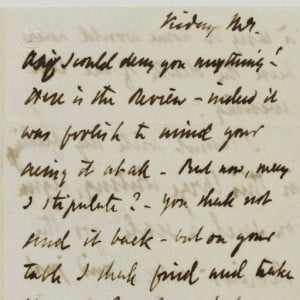 Friday Mg.
As if I could deny you anything!
Here is the Review - indeed it
was foolish to mind your
seeing it at all - But now, may
I stipulate? - You shall not
send it back - but on your
table I shall find and take